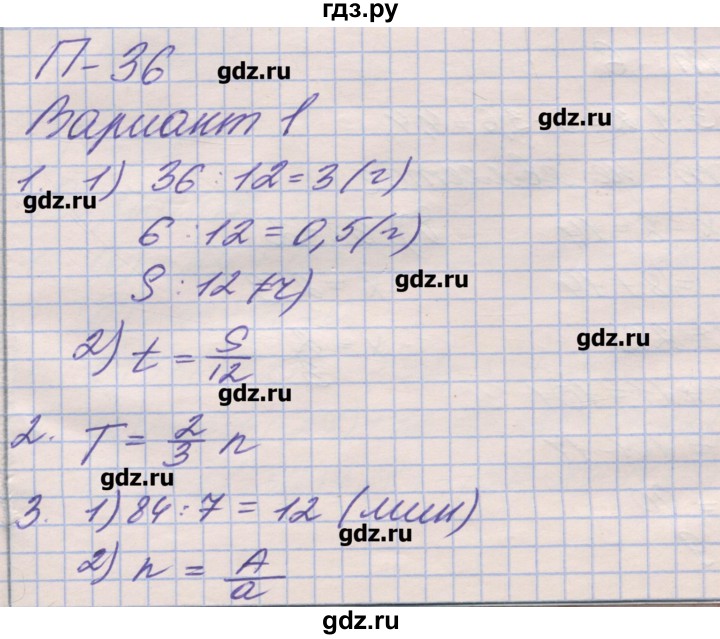 гдз.ру
П-36
gdz.ru
Вариант 1
gdz.ru
1. 1) 36 : 12 = 3 (г)
gdz.ru
6 : 12 = 0,5 (г)
S : 12 (ч)
gdz.ru
2) t = S/12
gdz.ru
gdz.ru
2. T = 2/3 n
gdz.ru
3. 1) 84 : 7 = 12 (мин)
gdz.ru
2) n = A/a
gdz.ru